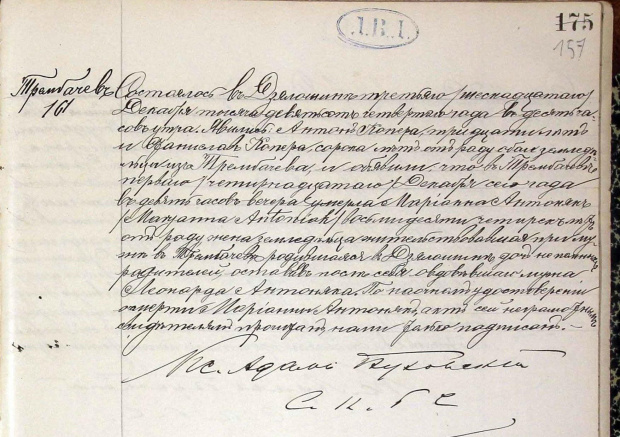 175
157
Трембачевъ
161
Состоялось въ Дзялошинѣ третьяго /шеснадцатаго/
Декабря тысяча девятьсотъ четвертаго года въ десять ча-
совъ утра. Явились: Антонъ Копера, тридцати лѣтъ
и Станиславъ Копера, сорока лѣтъ отъ роду оба земледѣль-
цы изъ Трембачева, и объявили, что въ Трембачевѣ
перваго /четырнадцатаго/ Декабря сего года
въ девять часовъ вечера умерла Маріанна Антонякъ
/Maryanna Antoniak/ восьмидесяти четырехъ лѣтъ
отъ роду жена земледѣльца жительствовавшая при му-
жѣ въ Трембачевѣ родившаяся въ Дзялошинѣ, дочь не
родителей, оставивъ послѣ себя овдовѣвшаго мужа
Леонарда Антоняка. По настоящемъ удостовѣреніи
о смерти Маріанны Антонякъ, актъ сей неграмотнымъ
свидѣтелямъ прочитанъ, нами только подписанъ.-
Кс. Адамъ
С. К. Г. С.